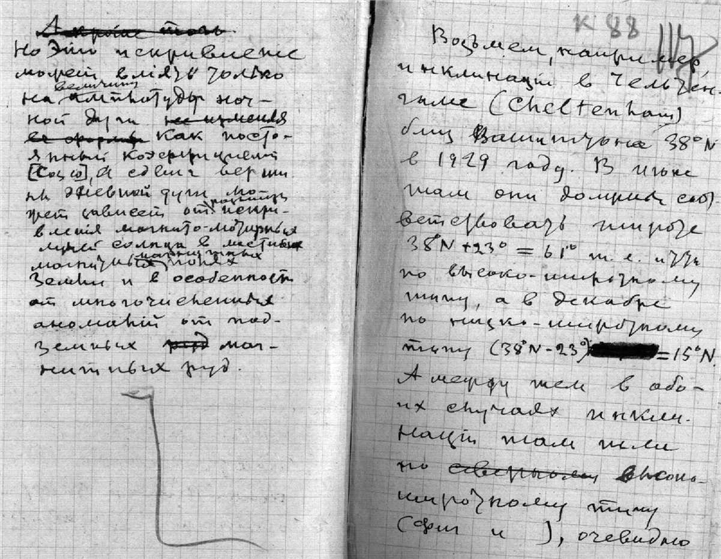 А кроме того
но это искривление
может влиять только
на величину амплитуды ноч-
ной дуги не изменяя
ее формы как посто-
янный коэффициент
[Cos ω], а сдвиг верши
ны дневной дуги мо-
жет зависеть от искри-
вления магнито-моторных
лучей солнца в местных
магнитных полях
Земли и в особенности
от многочисленных
аномалий от под-
земных руд маг-
нитных руд.
К 88
Возьмем, например,
инклинации в Чельтен-
гаме (Cheltenham)
близ Вашингтона 38°N
в 1929 году. В июне
там они должны соот
ветствовать широте
38°N+23° = 61° т.е. идти
по высоко-широтному
типу, а в декабре
по низко-широтному
типу (38°N-23°) =15°N.
А между тем в обо-
их случаях инкли-
нации там шли
по северному высоко-
широтному типу
(фиг и ), очевидно